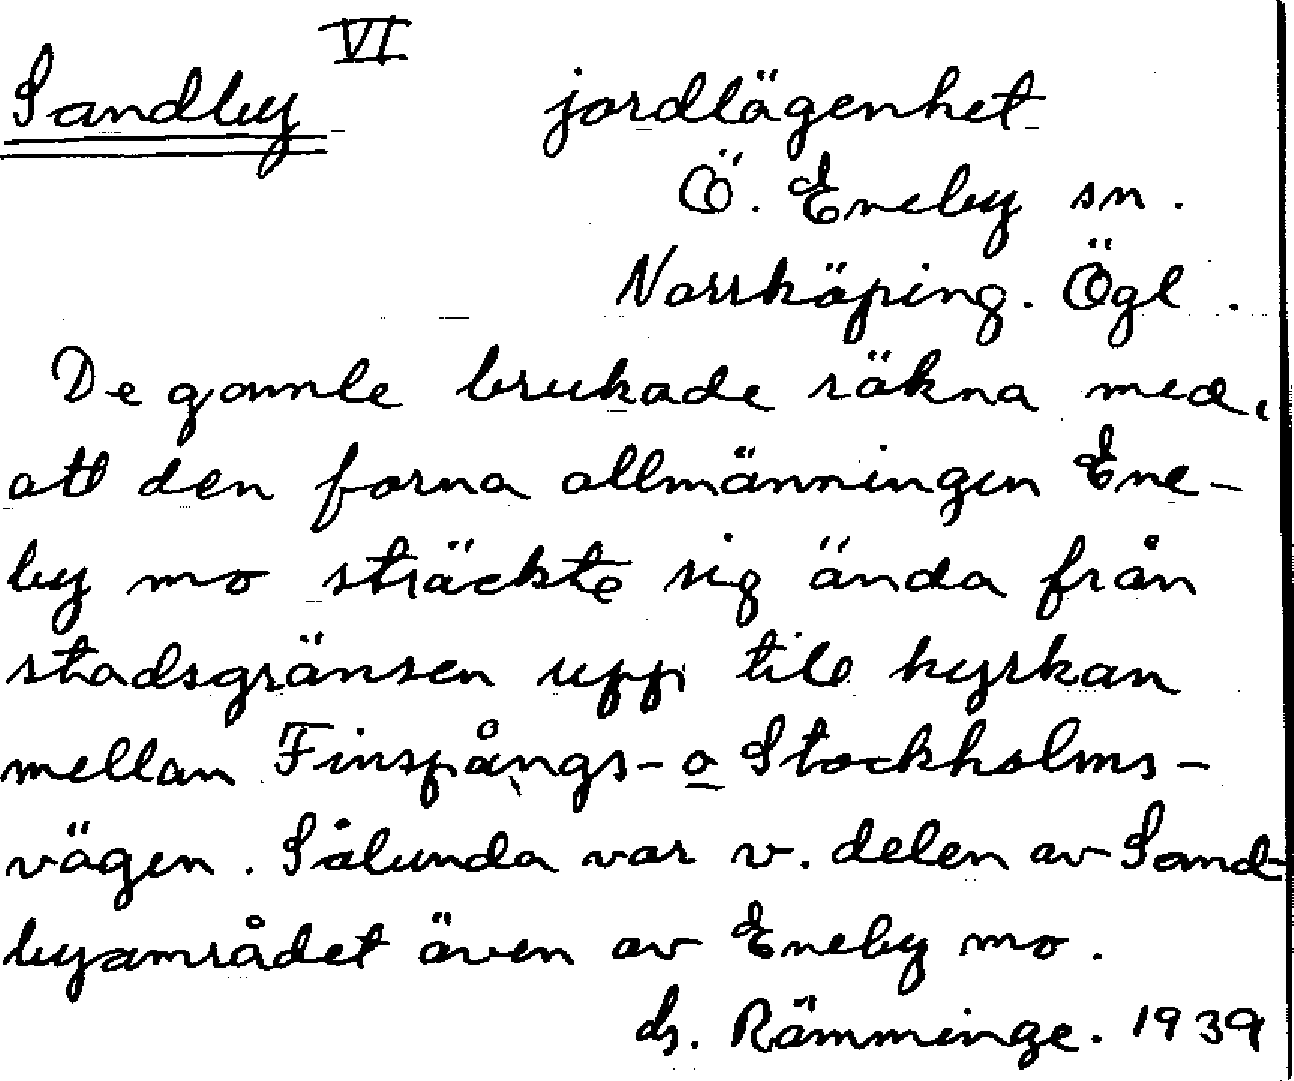 VI
Sandby jordlägenhet
Ö. Eneby sn.
Norrköping. Ögl.
De gamle brukade räkna med,
att den forna allmänningen Ene-
by mo sträckte sig ända från
stadsgränsen upp till kyrkan
mellan Finspångs- o Stockholms-
vägen. Sålunda var v. delen av Sand-
byområdet även av Eneby mo.
Rämminge. 1939